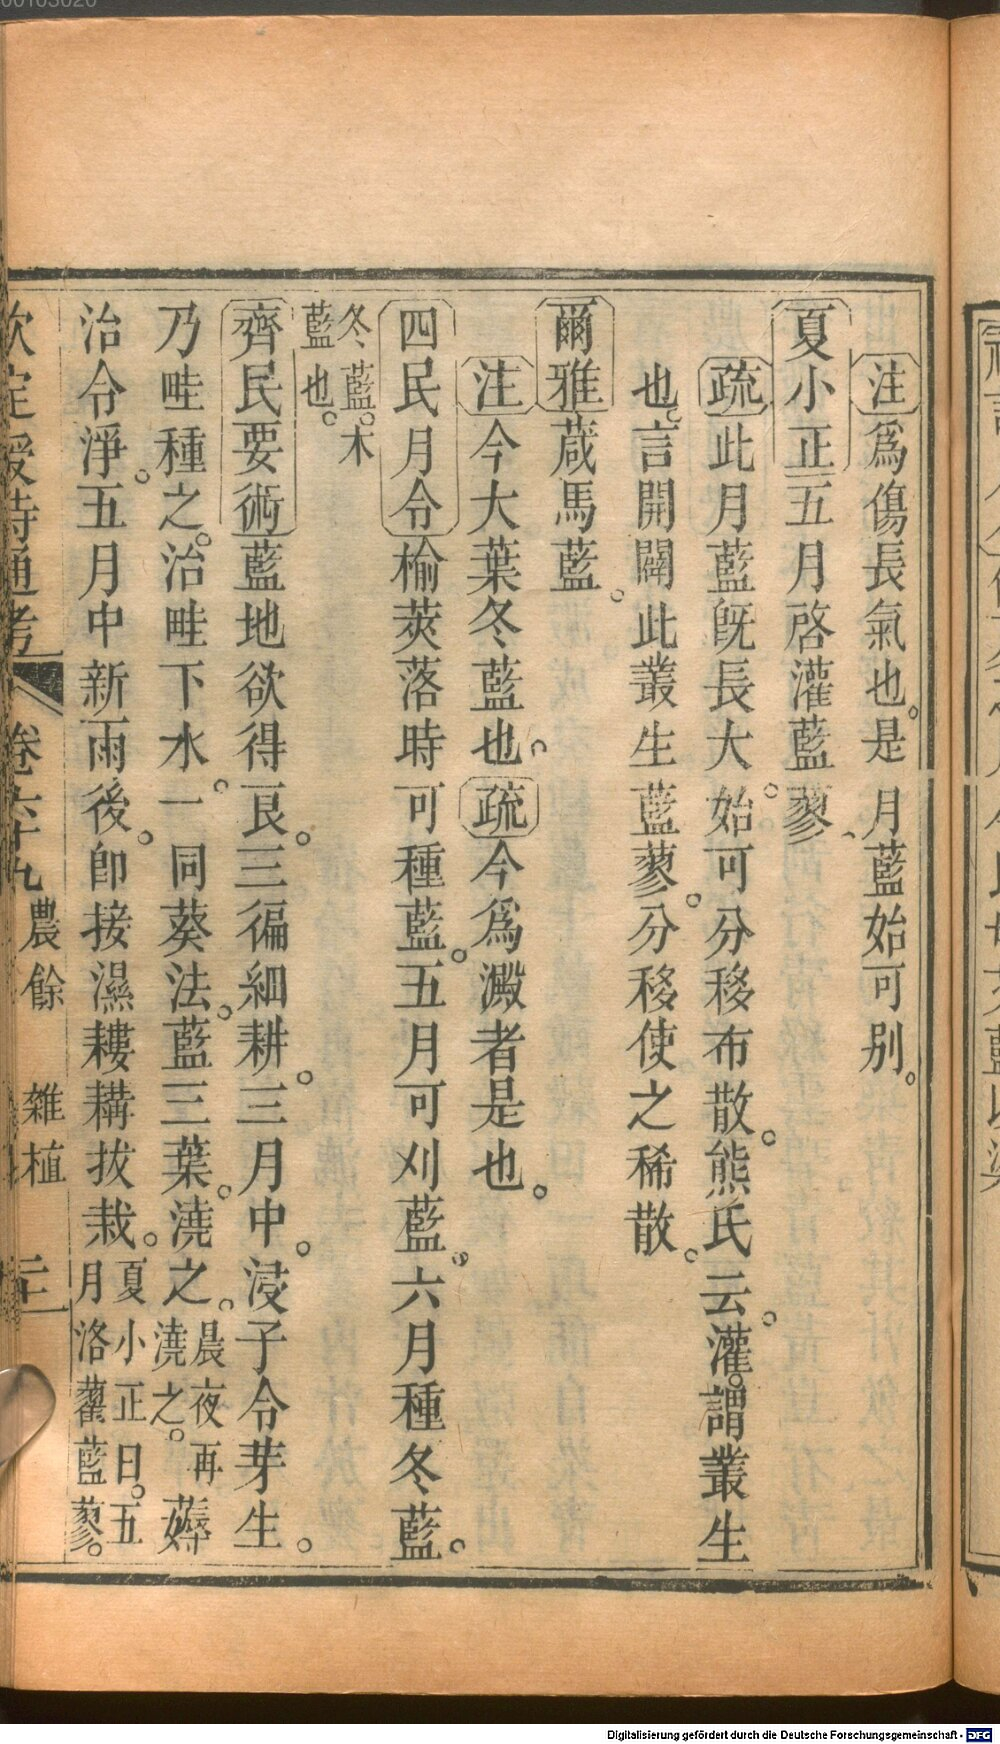 注爲傷長氣也。是月藍始可别。
夏小正五月啓灌藍蓼、
疏此月藍旣長大。始可分移布散。熊氏云。灌。謂叢生
也。言開闢此叢生藍蓼。分移使之稀散。
爾雅葴馬藍。
注今大葉冬藍也。疏今爲澱者是也。
四民月令榆莢落時可種藍。五月可刈藍。六月種冬藍。
冬藍。木
藍也。
齊民要術藍地欲得良。三徧細耕。三月中。浸子令芽生。
乃畦種之。治畦下水。一同葵法。藍三葉。澆之。
晨夜再
澆之。
薅
治令淨。五月中新雨後。卽接濕耬耩拔栽。
夏小正曰。五
月洛灌藍蓼。
欽定授時通考 卷六十九 農餘 雜植 二十一
Digitalisierung gefördert durch die Deutsche Forschungsgemeinschaft - DFG